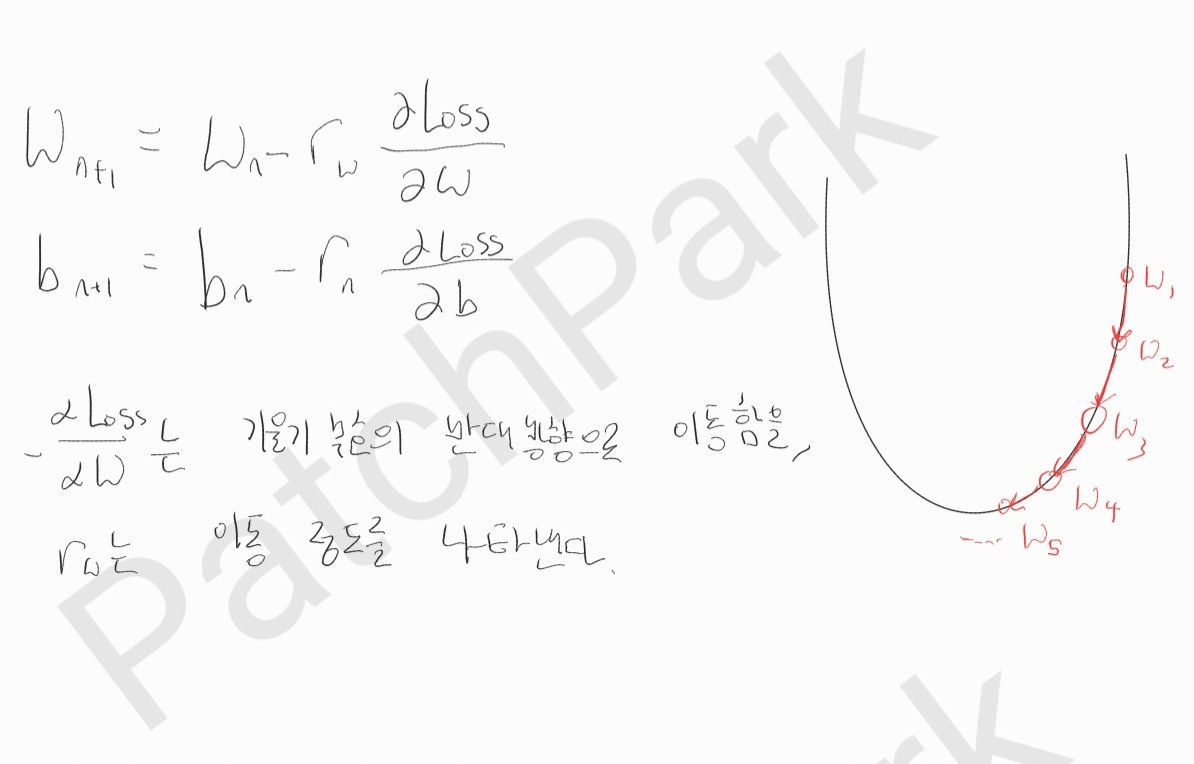 W_{n+1} = W_n - r_w ∂Loss/∂W
b_{n+1} = b_n - r_n ∂Loss/∂b
- ∂Loss/∂W 는 기울기 부호의 반대 방향으로 이동함을,
r_w는 이동 정도를 나타낸다.
W_1
W_2
W_3
W_4
---- W_5
PatchPark
rk